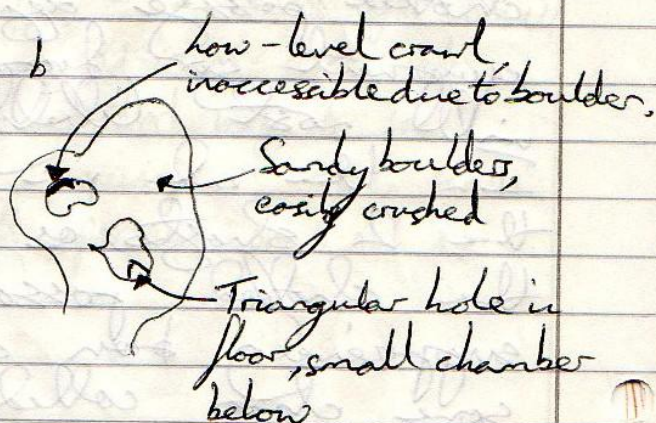 b
Low-level crawl,
inaccessible due to boulder.
Sandy boulders,
easily crushed
Triangular hole in
floor, small chamber
below